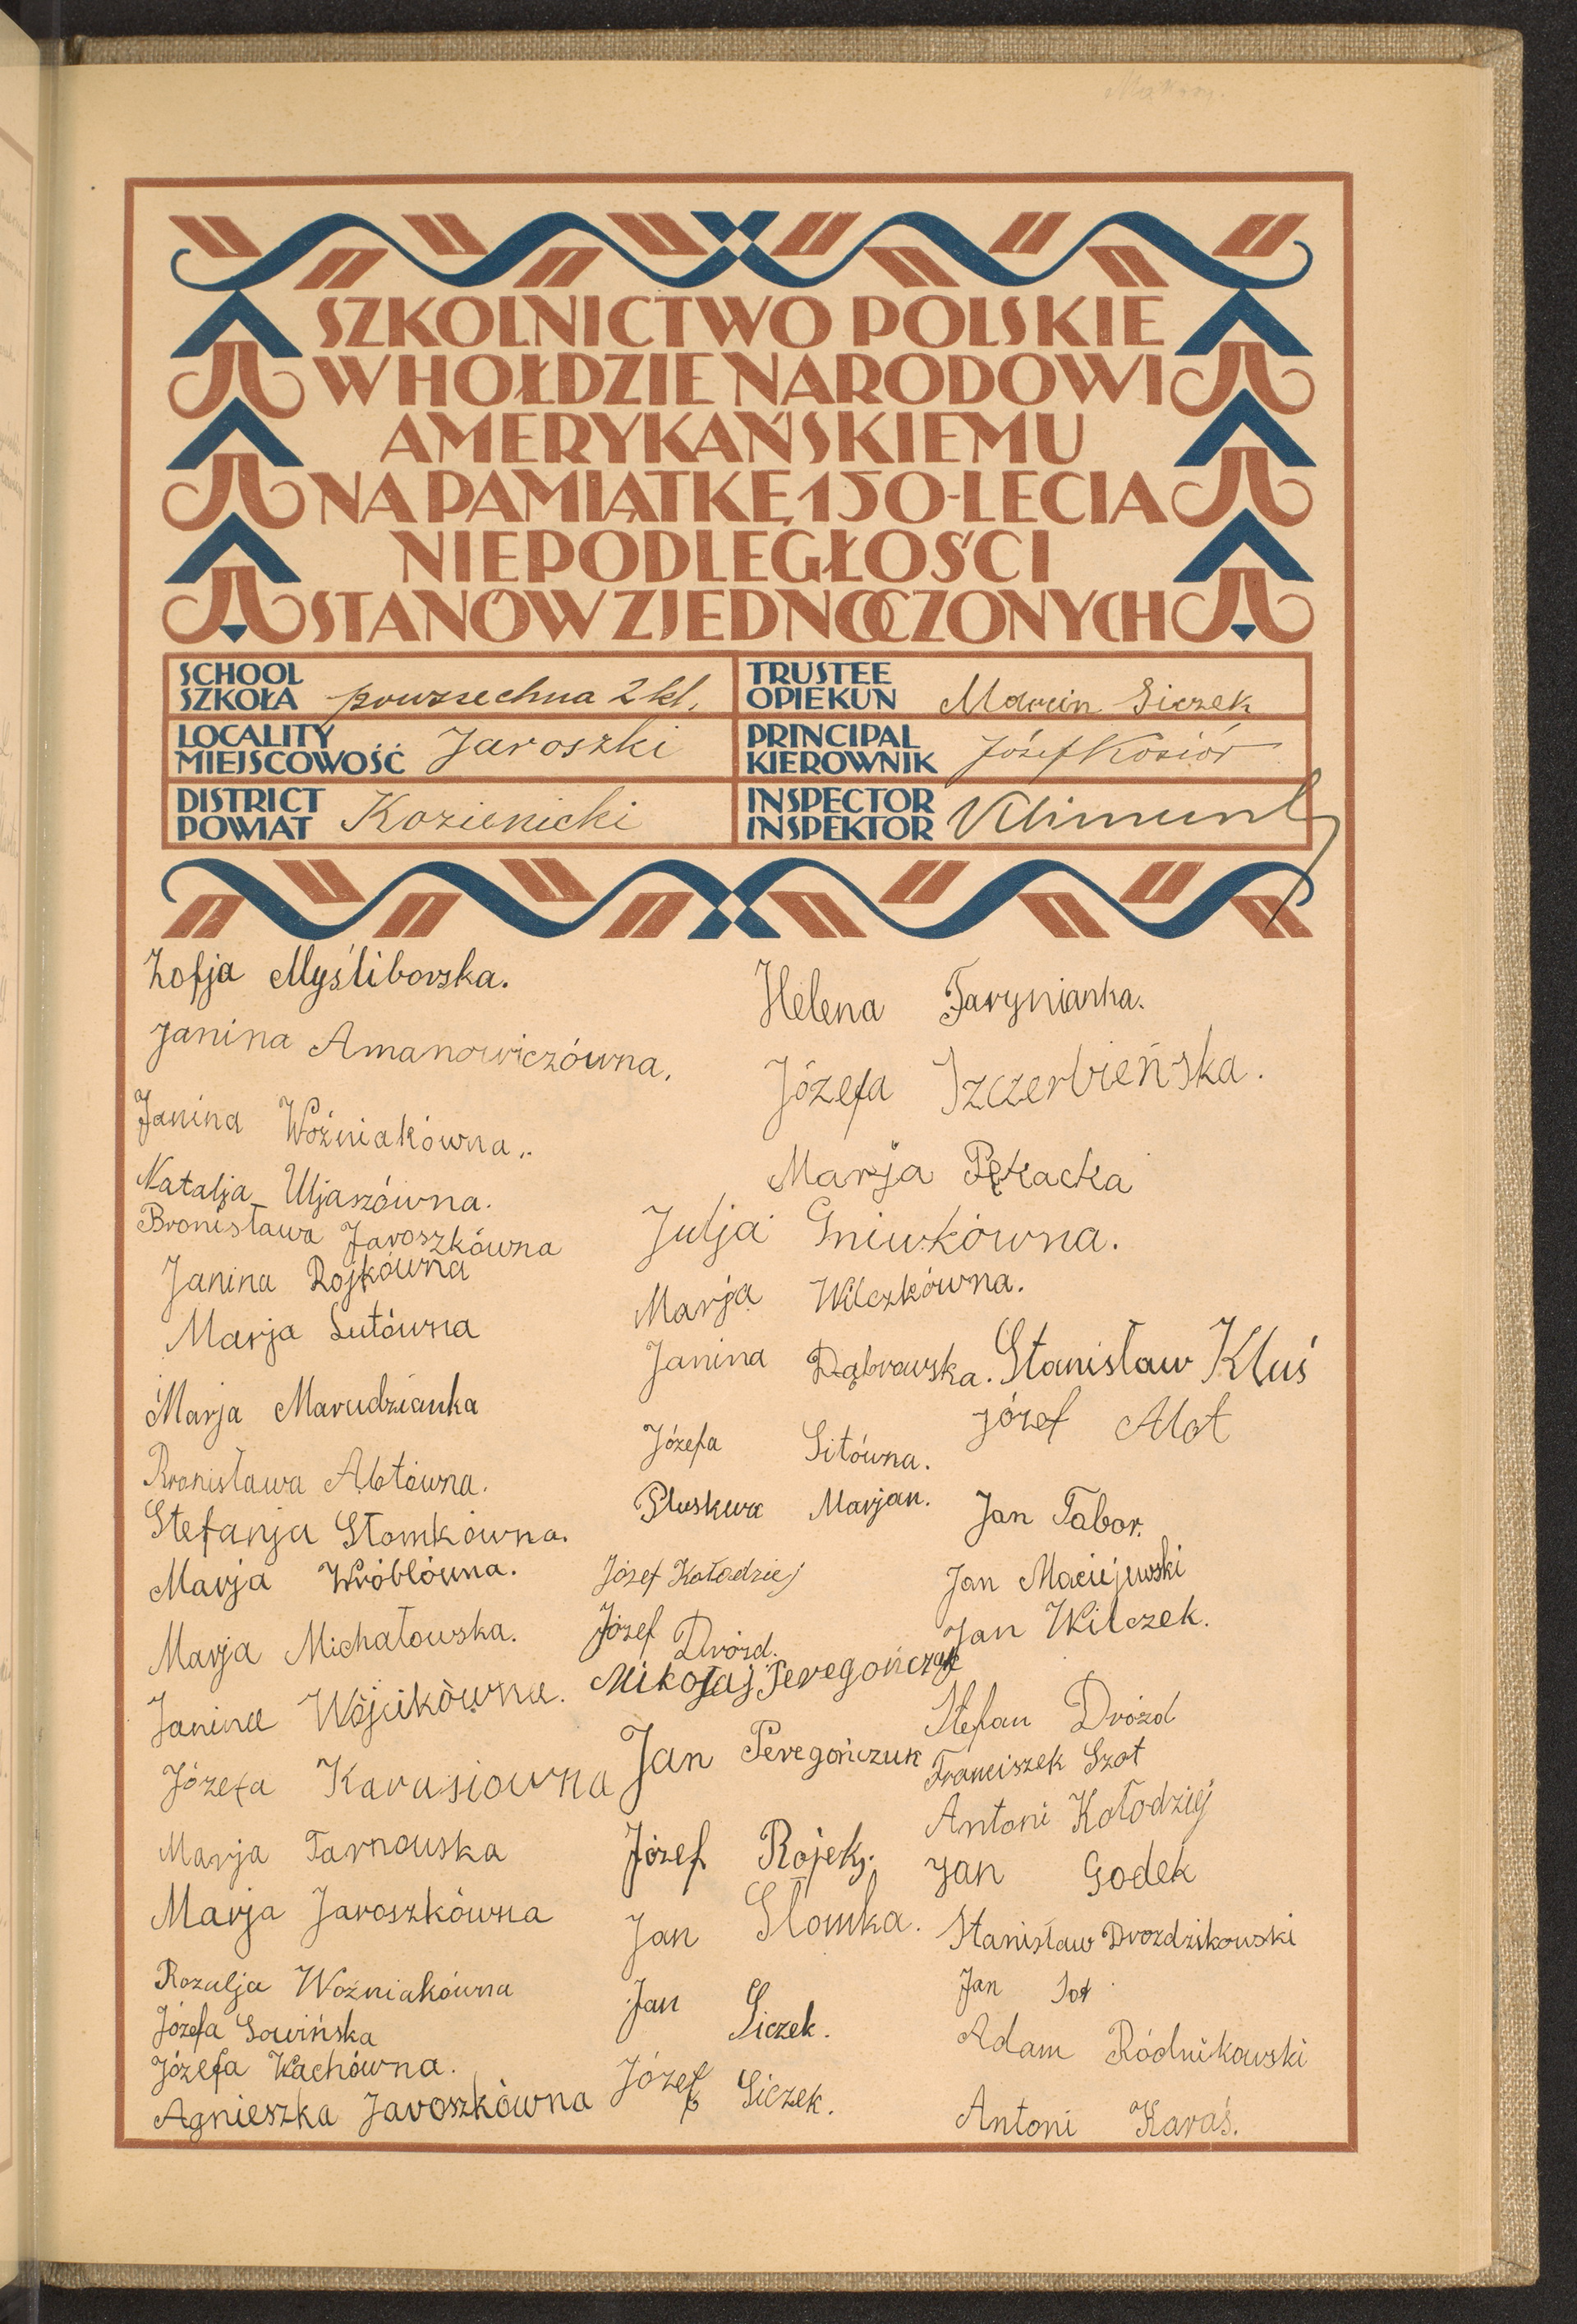 SZKOLNICTWO POLSKIE
W HOŁDZIE NARODOWI
AMERYKAŃSKIEMU
NA PAMIĄTKĘ 150-LECIA
NIEPODLEGŁOŚCI
STANÓW ZJEDNOCZONYCH
SCHOOL
SZKOŁA powszechna 2 kl.
TRUSTEE
OPIEKUN Marcin Siczek
LOCALITY
MIEJSCOWOŚĆ Jaroszki
PRINCIPAL
KIEROWNIK Józef Kosiór
DISTRICT
POWIAT Kozienicki
INSPECTOR
INSPEKTOR
Zofja Myśliborska.
Janina Amanowiczówna.
Janina Woźniakówna..
Natalja Uljaszówna.
Bronisława Jaroszkówna
Janina Rojkówna
Marja Lutówna
Marja Marudzianka
Bronisława Ałotówna.
Stefanja Słomkówna.
Marja Wróblówna.
Marja Michałowska.
Janina Wójcikówna.
Józefa Karasiowna
Marja Tarnowska
Marja Jaroszkówna
Rozalja Woźniakówna
Józefa Sowińska
Józefa Wachówna.
Agnieszka Jaroszkówna
Helena Farynianka.
Józefa Szczerbieńska.
Marja Pękacka
Julja Gniwkówna.
Marja Wilczkówna.
Janina Dąbrowska.
Józefa Sitówna.
Pluskwa Marjan.
Józef Kołodziej
Józef Drózd.
Mikołaj Peregończuk
Jan Peregończuk
Józef Rojek.
Jan Słomka.
Jan Siczek.
Józef Siczek.
Stanisław Kluś
Józef Ałot
Jan Tabor.
Jan Maciejewski
Jan Wilczek.
Stefan Drózd
Franciszek Szot
Antoni Kołodziej
Jan Godek
Stanisław Drozdzikowski
Jan
Adam Ródnikowski
Antoni Karaś.